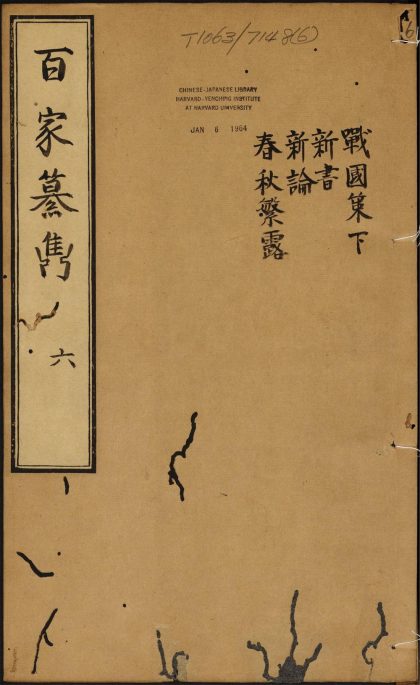 T1063/7148(6)
6
CHINESE-JAPANESE LIBRARY
HARVARD-YENCHING INSTITUTE
AT HARVARD UNIVERSITY
JAN 6 1964
戰國策下
新書
新論
春秋繁露
百家纂雋
六